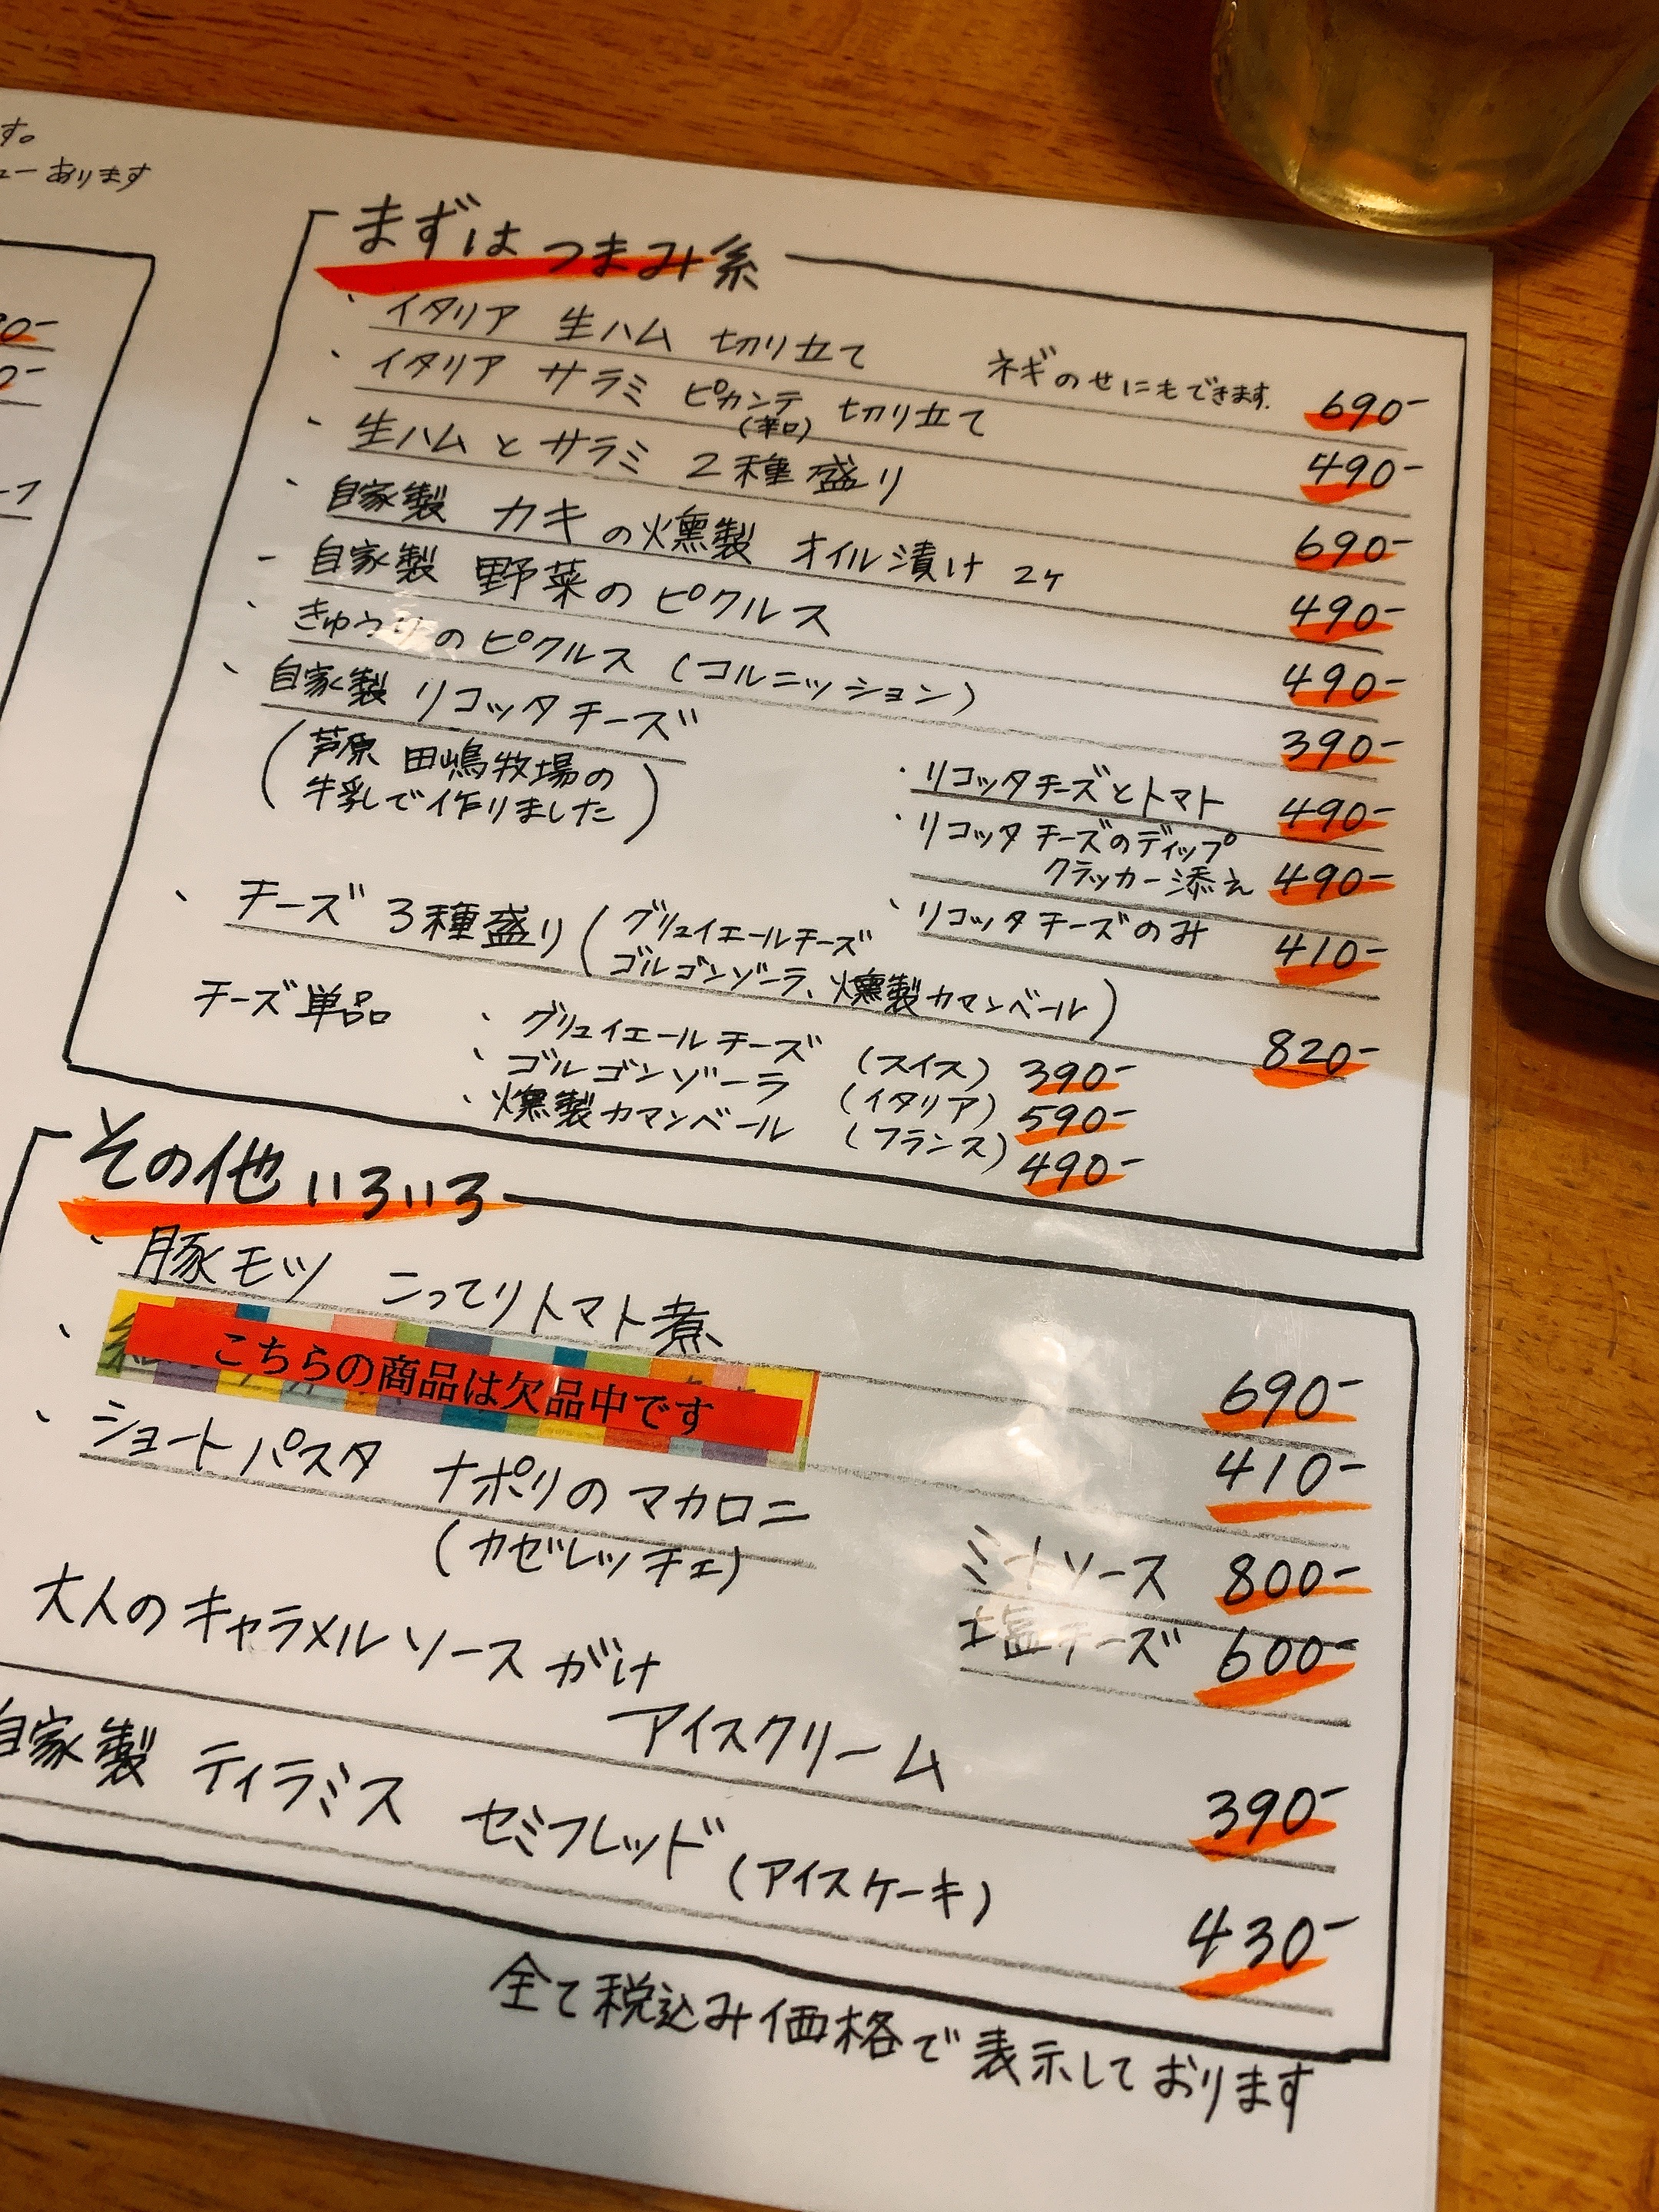 す。
ューあります
まずは つまみ系
イタリア 生ハム 切り立て ネギのせにもできます。 690-
イタリア サラミ ピカンテ (辛口) 切り立て 490-
生ハムとサラミ 2種盛り 690-
自家製 カキの燻製 オイル漬け 2ヶ 490-
自家製 野菜のピクルス 490-
きゅうりのピクルス (コルニッション) 390-
自家製 リコッタチーズ
(芦原 田嶋牧場の
牛乳で作りました)
・リコッタチーズとトマト 490-
・リコッタチーズのディップ
クラッカー添え 490-
・リコッタチーズのみ 410-
チーズ 3種盛り (グリュイエールチーズ
ゴルゴンゾーラ、燻製カマンベール) 820-
チーズ単品
・グリュイエールチーズ (スイス) 390-
・ゴルゴンゾーラ (イタリア) 590-
・燻製カマンベール (フランス) 490-
その他いろいろ
豚モツ こってりトマト煮 690-
こちらの商品は欠品中です 410-
ショートパスタ ナポリのマカロニ
(カゼレッチェ)
ミートソース 800-
塩チーズ 600-
大人のキャラメルソースがけ
アイスクリーム 390-
自家製 ティラミス セミフレッド (アイスケーキ) 430-
全て税込み価格で表示しております